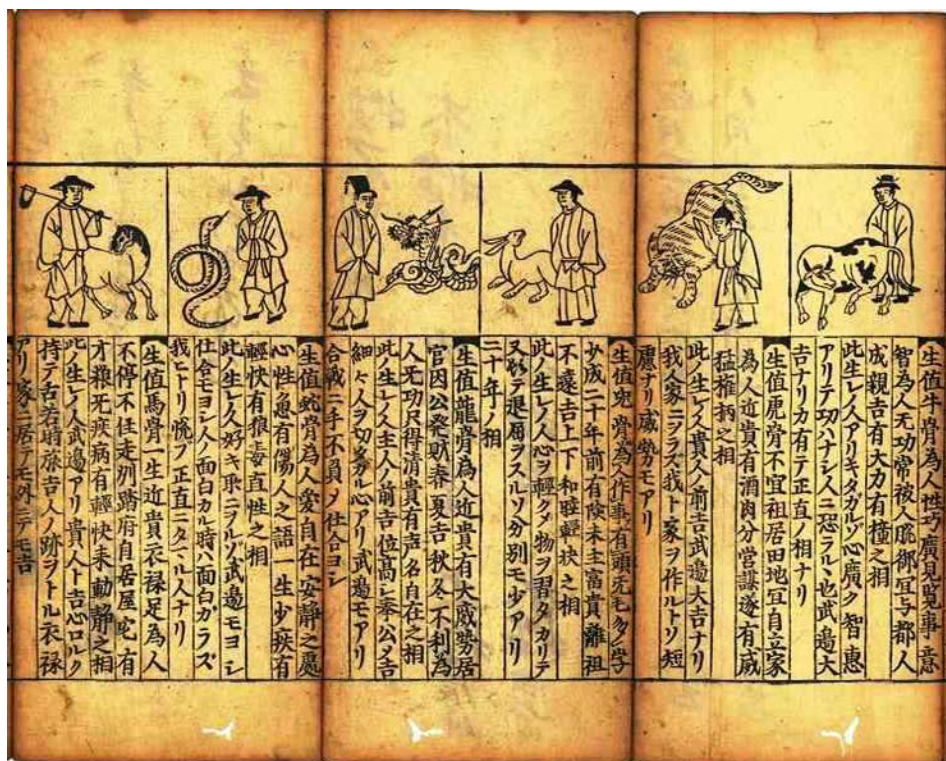 生值牛骨為人性巧廣見覧事意
智為人无功常被人疏御冝与都人
成親吉有大力有撞之相
此生レノ人アリキタガルゾ心廣ク智惠
アリテ功ハナシ人ニ恐ラル丶也武邉大
吉ナリカ有テ正直ノ相ナリ
生值虎骨不宜祖居田地冝自立家
為人近貴有酒肉分営謀遂有威
猛権柄之相
此ノ生レノ人貴人ノ前吉武邉大吉ナリ
我人家ニヲラズ我ト家ヲ作ルトリ短
慮ナリ威勢カモアリ
生值兎骨為人作事有頭无毛多学
少成二十年前有険未主富貴離祖
不遠吉上下和睦軽抉之相
此ノ生レノ人心ヲ軽クメ物ヲ習タカリテ
又テ退屈ラスルソ分別モ少アリ
二十年ノ相
生值龍骨為人近貴有大威勢居
官因公発財春夏吉秋冬不利為
人无功尺得清貴有声名自在之相
此生レノ人主人ノ前吉位高シ奉公メ吉
細々人ヲ切タガル心アリ武邉モアリ
合戦ニ手不負メ仕合ヨシ
生值蛇骨為人愛自在安静之處
心性急有傷人之語一生少疾有
軽快有狼毒直性之相
此ノ生レノ人好キ取ニヲルゾ武邉モヨシ
仕合モヨシ人ノ面白カル時ハ面白ガラズ
我ヒトリ悦フ正直ニタ一ル人ナリ
生值馬骨一生近貴衣禄足為人
不停不住走州踏府自居屋宅有
才粮死疾病有軽快未動静之相
此ノ生レノ人武邉アリ貴人ト吉心ロルク
持テ舌若時旅吉人ノ跡ヲトル衣禄
アリ家ニ居テモ外ニテモ吉